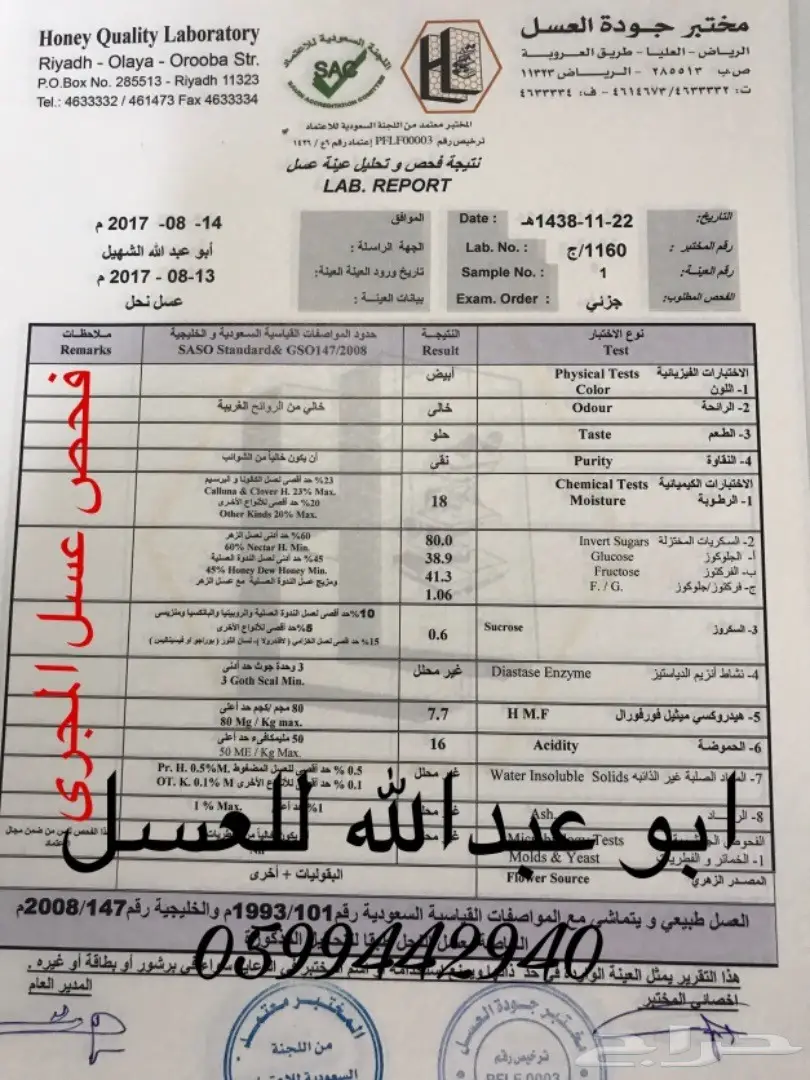 Honey Quality Laboratory
Riyadh - Olaya - Orooba Str.
P.O.Box No. 285513 - Riyadh 11323
Tel.: 4633332 / 461473 Fax 4633334
اللجنة السعودية للاعتماد
SAC
SAUDI ACCREDITATION COMMITTEE
H
مختبر جودة العسل
الرياض - العليا - طريق العروبة
ص.ب ٢٨٥٥١٣ - الرياض ١١٣٢٣
ت: ٤٦١٤٦٧٣/٤٦٣٣٣٣٢ - ف: ٤٦٣٣٣٣٤
المختبر معتمد من اللجنة السعودية للاعتماد
ترخيص رقم PFLF00003 إعتماد رقم ٦ع / ١٤٢٦
نتيجة فحص و تحليل عينة عسل
LAB. REPORT
التاريخ: 1438-11-22هـ Date :
الموافق 14- 08- 2017 م
رقم المختبر : 1160/ج Lab. No. :
الجهة الراسلة : أبو عبد الله الشهيل
رقم العينة: 1 Sample No. :
تاريخ ورود العينة العينة: 13-08 - 2017 م
الفحص المطلوب: جزئي Exam. Order :
بيانات العينة : عسل نحل
نوع الاختبار النتيجة حدود المواصفات القياسية السعودية و الخليجية ملاحظات
Test Result SASO Standard& GSO147/2008 Remarks
الاختبارات الفيزيائية Physical Tests
1- اللون Color أبيض
2- الرائحة Odour خالى خالي من الروائح الغريبة
3- الطعم Taste حلو
4- النقاوة Purity نقي أن يكون خالياً من الشوائب
الاختبارات الكيميائية Chemical Tests
1- الرطوبة Moisture 18
23% حد أقصى لعسل الكالونا و البرسيم
Calluna & Clover H. 23% Max.
20% حد أقصى للأنواع الأخرى
Other Kinds 20% Max.
2- السكريات المختزلة Invert Sugars 80.0
أ- الجلوكوز Glucose 38.9
ب- الفركتوز Fructose 41.3
ج- فركتوز/جلوكوز F. / G. 1.06
60% حد أدنى لعسل الزهر
60% Nectar H. Min.
45% حد أدنى لعسل الندوة العسلية
45% Honey Dew Honey Min.
ومزيج عسل الندوة العسلية مع عسل الزهر
3- السكروز Sucrose 0.6
10% حد أقصى لعسل الندوة العسلية والروبينيا والبانكسيا
5% حد أقصى للأنواع الأخرى
15% حد أقصى لعسل الخزامي
4- نشاط أنزيم الدياستيز Diastase Enzyme غير محلل
3 وحدة جوث حد أدنى
3 Goth Scal Min.
5- هيدروكسي ميثيل فورفورال H M.F 7.7
80 مجم /كجم حد أعلى
80 Mg / Kg max.
6- الحموضة Acidity 16
50 مليمكافىء حد أعلى
50 ME / Kg Max.
7- المواد الصلبة غير الذائبه Water Insoluble Solids غير محلل
0.5 % حد أقصى للعسل المضغوط Pr. H. 0.5%M.
0.1 % حد أقصى للأنواع الأخرى OT. K. 0.1% M
8- الرماد Ash غير محلل
1% حد أعلى 1 % Max.
Tests
1- الخمائر و الفطريات Molds & Yeast
المصدر الزهري Flower Source البقوليات + أخرى
فحص عسل المجرى
ابو عبدالله للعسل
العسل طبيعي و يتماشي مع المواصفات القياسية السعودية رقم 1993/101م والخليجية رقم 2008/147م
0599442940
هذا التقرير يمثل العينة الواردة في حد ذاتها
في برشور أو بطاقة أو غيره .
إخصائي المختبر
المدير العام
المختبر معتمد
من اللجنة
السعودية للاعتماد
مختبر جودة العسل
ترخيص رقم
PFLF 0003
حراج